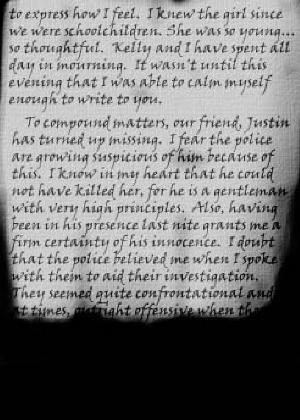 to express how I feel. I knew the girl since
we were schoolchildren. She was so young...
so thoughtful. Kelly and I have spent all
day in mourning. It wasn't until this
evening that I was able to calm myself
enough to write to you.
To compound matters, our friend, Justin
has turned up missing. I fear the police
are growing suspicious of him because of
this. I know in my heart that he could
not have killed her, for he is a gentleman
with very high principles. Also, having
been in his presence last nite grants me a
firm certainty of his innocence. I doubt
that the police believed me when I spoke
with them to aid their investigation.
They seemed quite confrontational and
at times, outright offensive when